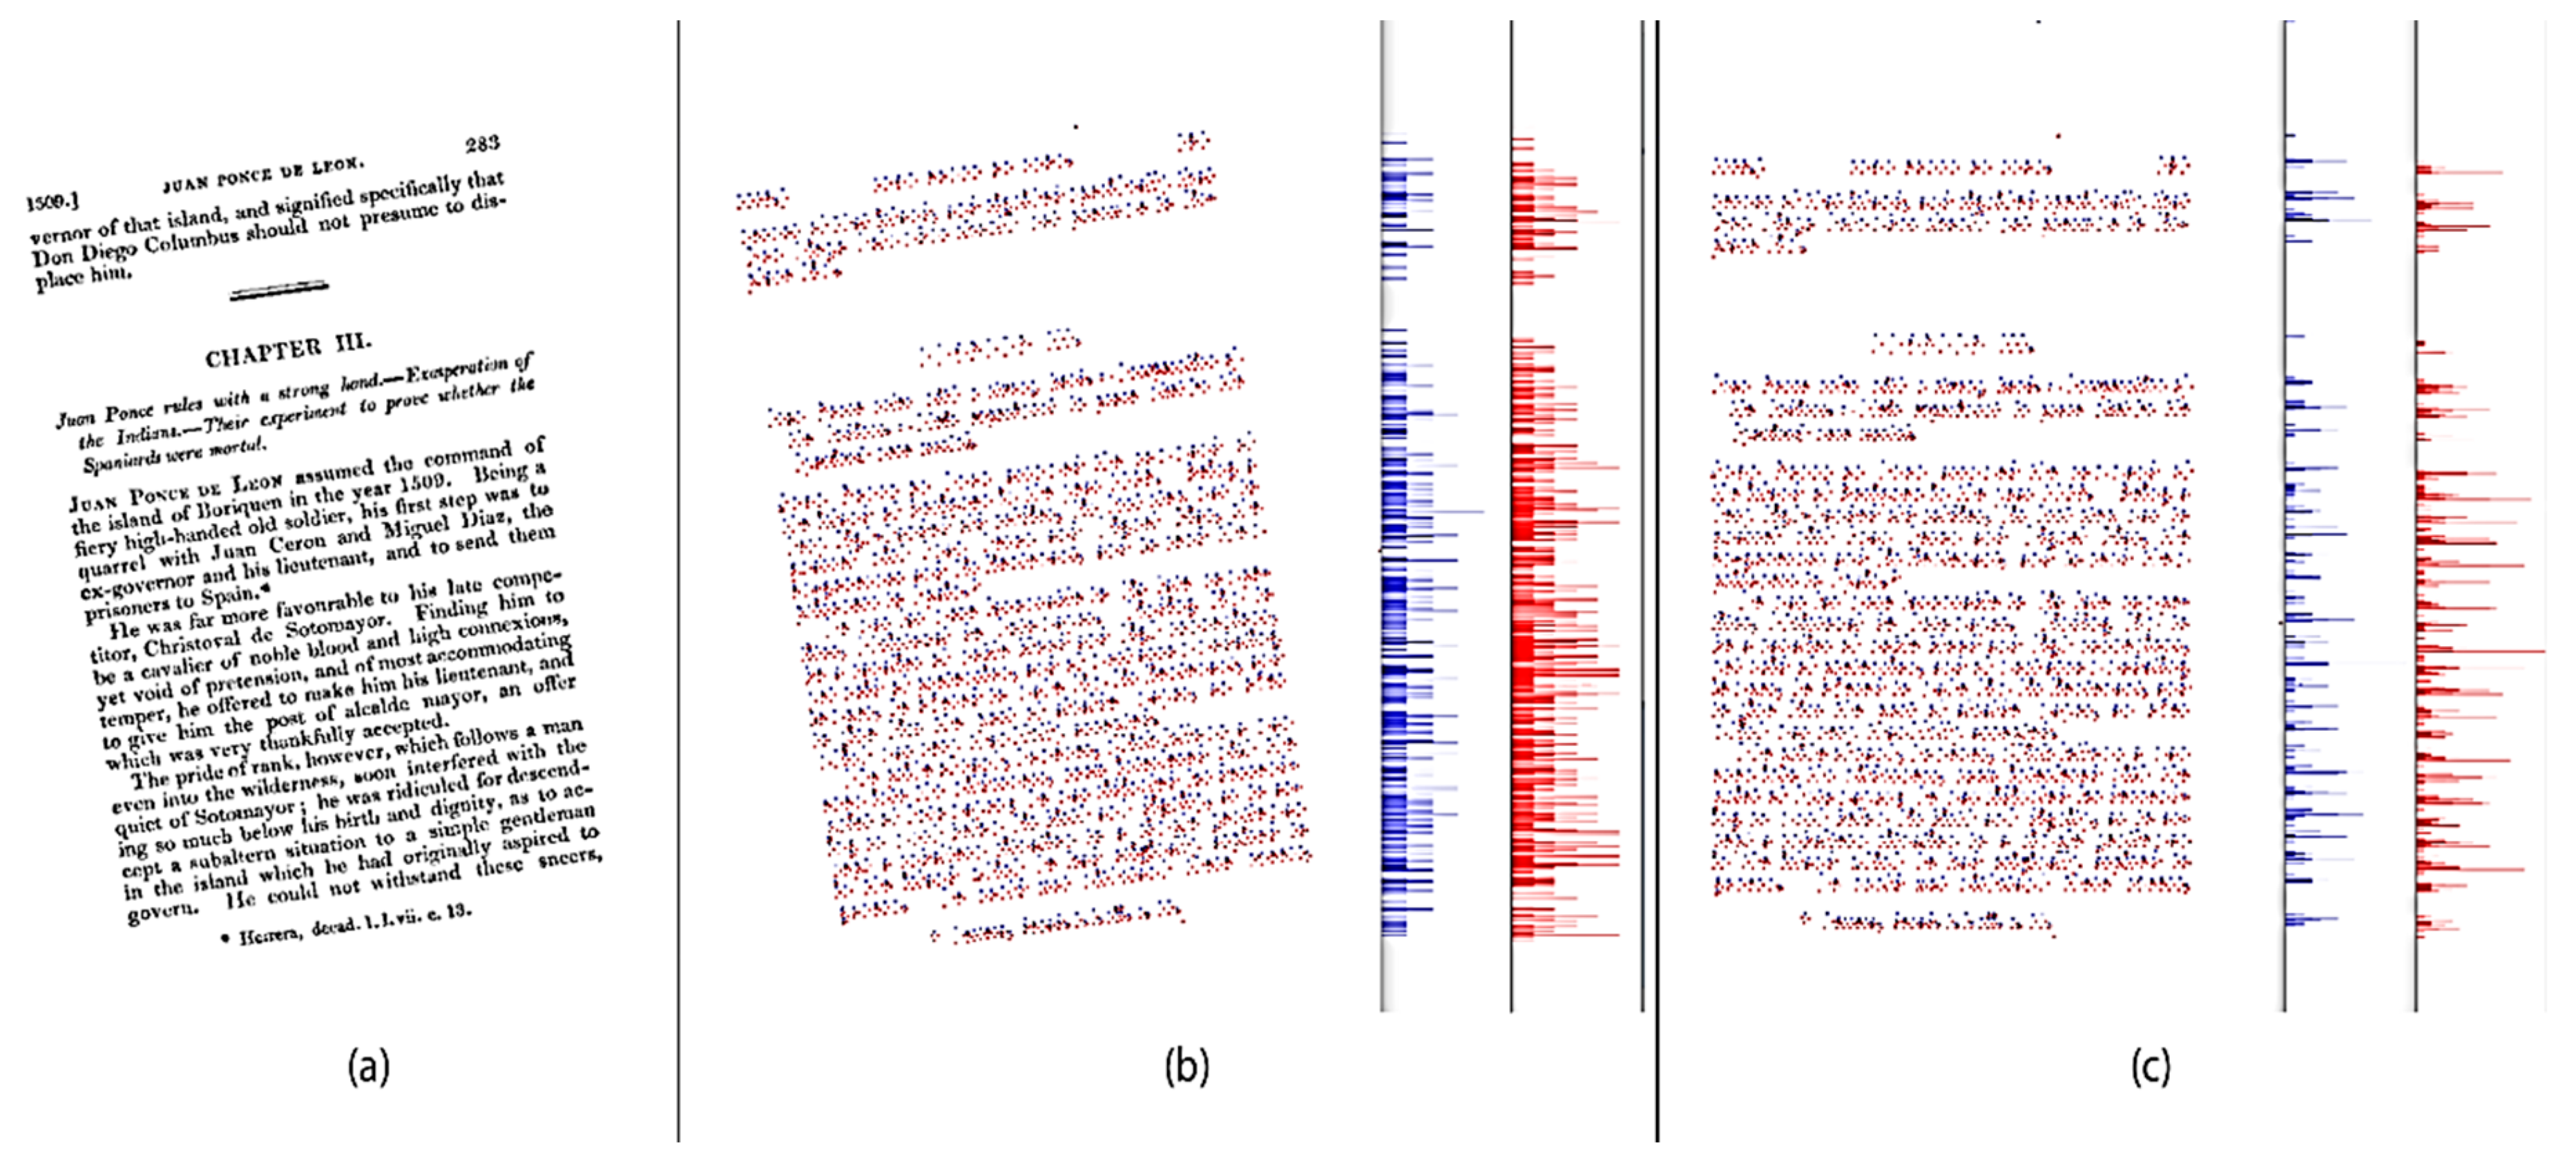 1509.] JUAN PONCE DE LEON. 283
vernor of that island, and signified specifically that
Don Diego Columbus should not presume to dis-
place him.
CHAPTER III.
Juan Ponce rules with a strong hand.—Exasperation of
the Indians.—Their experiment to prove whether the
Spaniards were mortal.
JUAN PONCE DE LEON assumed the command of
the island of Boriquen in the year 1509. Being a
fiery high-handed old soldier, his first step was to
quarrel with Juan Ceron and Miguel Diaz, the
ex-governor and his lieutenant, and to send them
prisoners to Spain.*
He was far more favourable to his late compe-
titor, Christoval de Sotomayor. Finding him to
be a cavalier of noble blood and high connexions,
yet void of pretension, and of most accommodating
temper, he offered to make him his lieutenant, and
to give him the post of alcalde mayor, an offer
which was very thankfully accepted.
The pride of rank, however, which follows a man
even into the wilderness, soon interfered with the
quiet of Sotomayor; he was ridiculed for descend-
ing so much below his birth and dignity, as to ac-
cept a subaltern situation to a simple gentleman
in the island which he had originally aspired to
govern. He could not withstand these sneers,
* Herrera, decad. 1. l. vii. c. 13.
(a) (b) (c)